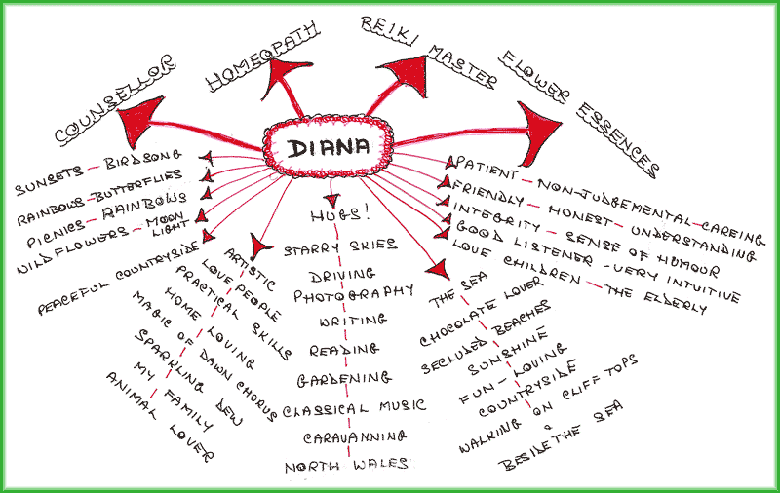 COUNSELLOR
HOMEOPATH
REIKI MASTER
FLOWER ESSENCES
DIANA
SUNSETS - BIRDSONG
RAINBOWS - BUTTERFLIES
PICNICS - RAINBOWS
WILDFLOWERS - MOON LIGHT
PEACEFUL COUNTRYSIDE
ARTISTIC
LOVE PEOPLE
PRACTICAL SKILLS
HOME LOVING
MAGIC OF DAWN CHORUS
SPARKLING DEW
MY FAMILY
ANIMAL LOVER
HUGS!
STARRY SKIES
DRIVING
PHOTOGRAPHY
WRITING
READING
GARDENING
CLASSICAL MUSIC
CARAVANNING
NORTH WALES
THE SEA
CHOCOLATE LOVER
SECLUDED BEACHES
SUNSHINE
FUN - LOVING
COUNTRYSIDE
WALKING ON CLIFF TOPS
&
BESIDE THE SEA
PATIENT - NON-JUDGEMENTAL - CAREING
FRIENDLY - HONEST - UNDERSTANDING
INTEGRITY - SENSE OF HUMOUR
GOOD LISTENER - VERY INTUITIVE
LOVE CHILDREN - THE ELDERLY